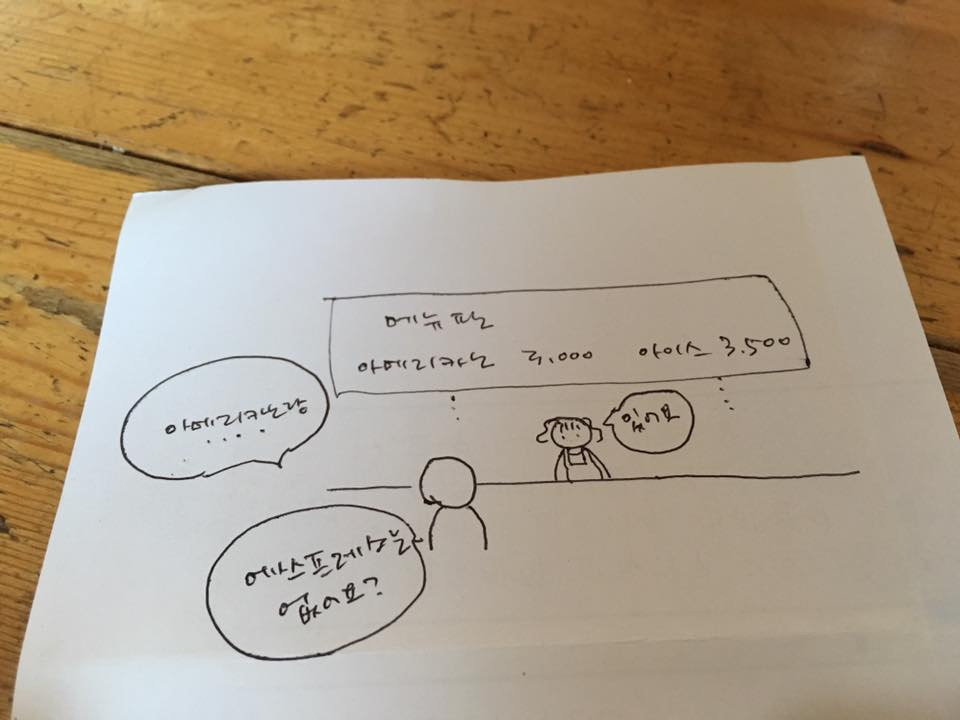 메뉴판
아메리카노 3,000 아이스 3.500
아메리카노랑
....
있어요
에스프레소는
없어요?